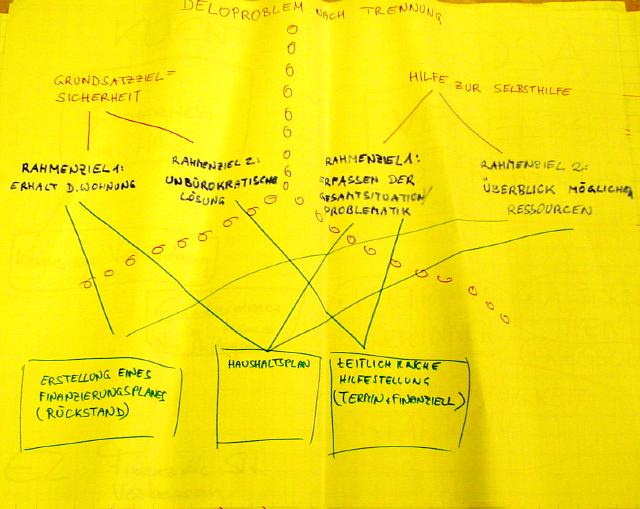 DELOPROBLEM NACH TRENNUNG
GRUNDSATZZIEL =
SICHERHEIT
HILFE ZUR SELBSTHILFE
RAHMENZIEL 1:
ERHALT D. WOHNUNG
RAHMENZIEL 2:
UNBÜROKRATISCHE
LÖSUNG
RAHMENZIEL 1:
ERFASSEN DER
GESAMTSITUATION/
PROBLEMATIK
RAHMENZIEL 2:
ÜBERBLICK MÖGLICHER
RESSOURCEN
ERSTELLUNG EINES
FINANZIERUNGSPLANES
(RÜCKSTAND)
HAUSHALTSPLAN
ZEITLICH RASCHE
HILFESTELLUNG
(TERMIN + FINANZIELL)